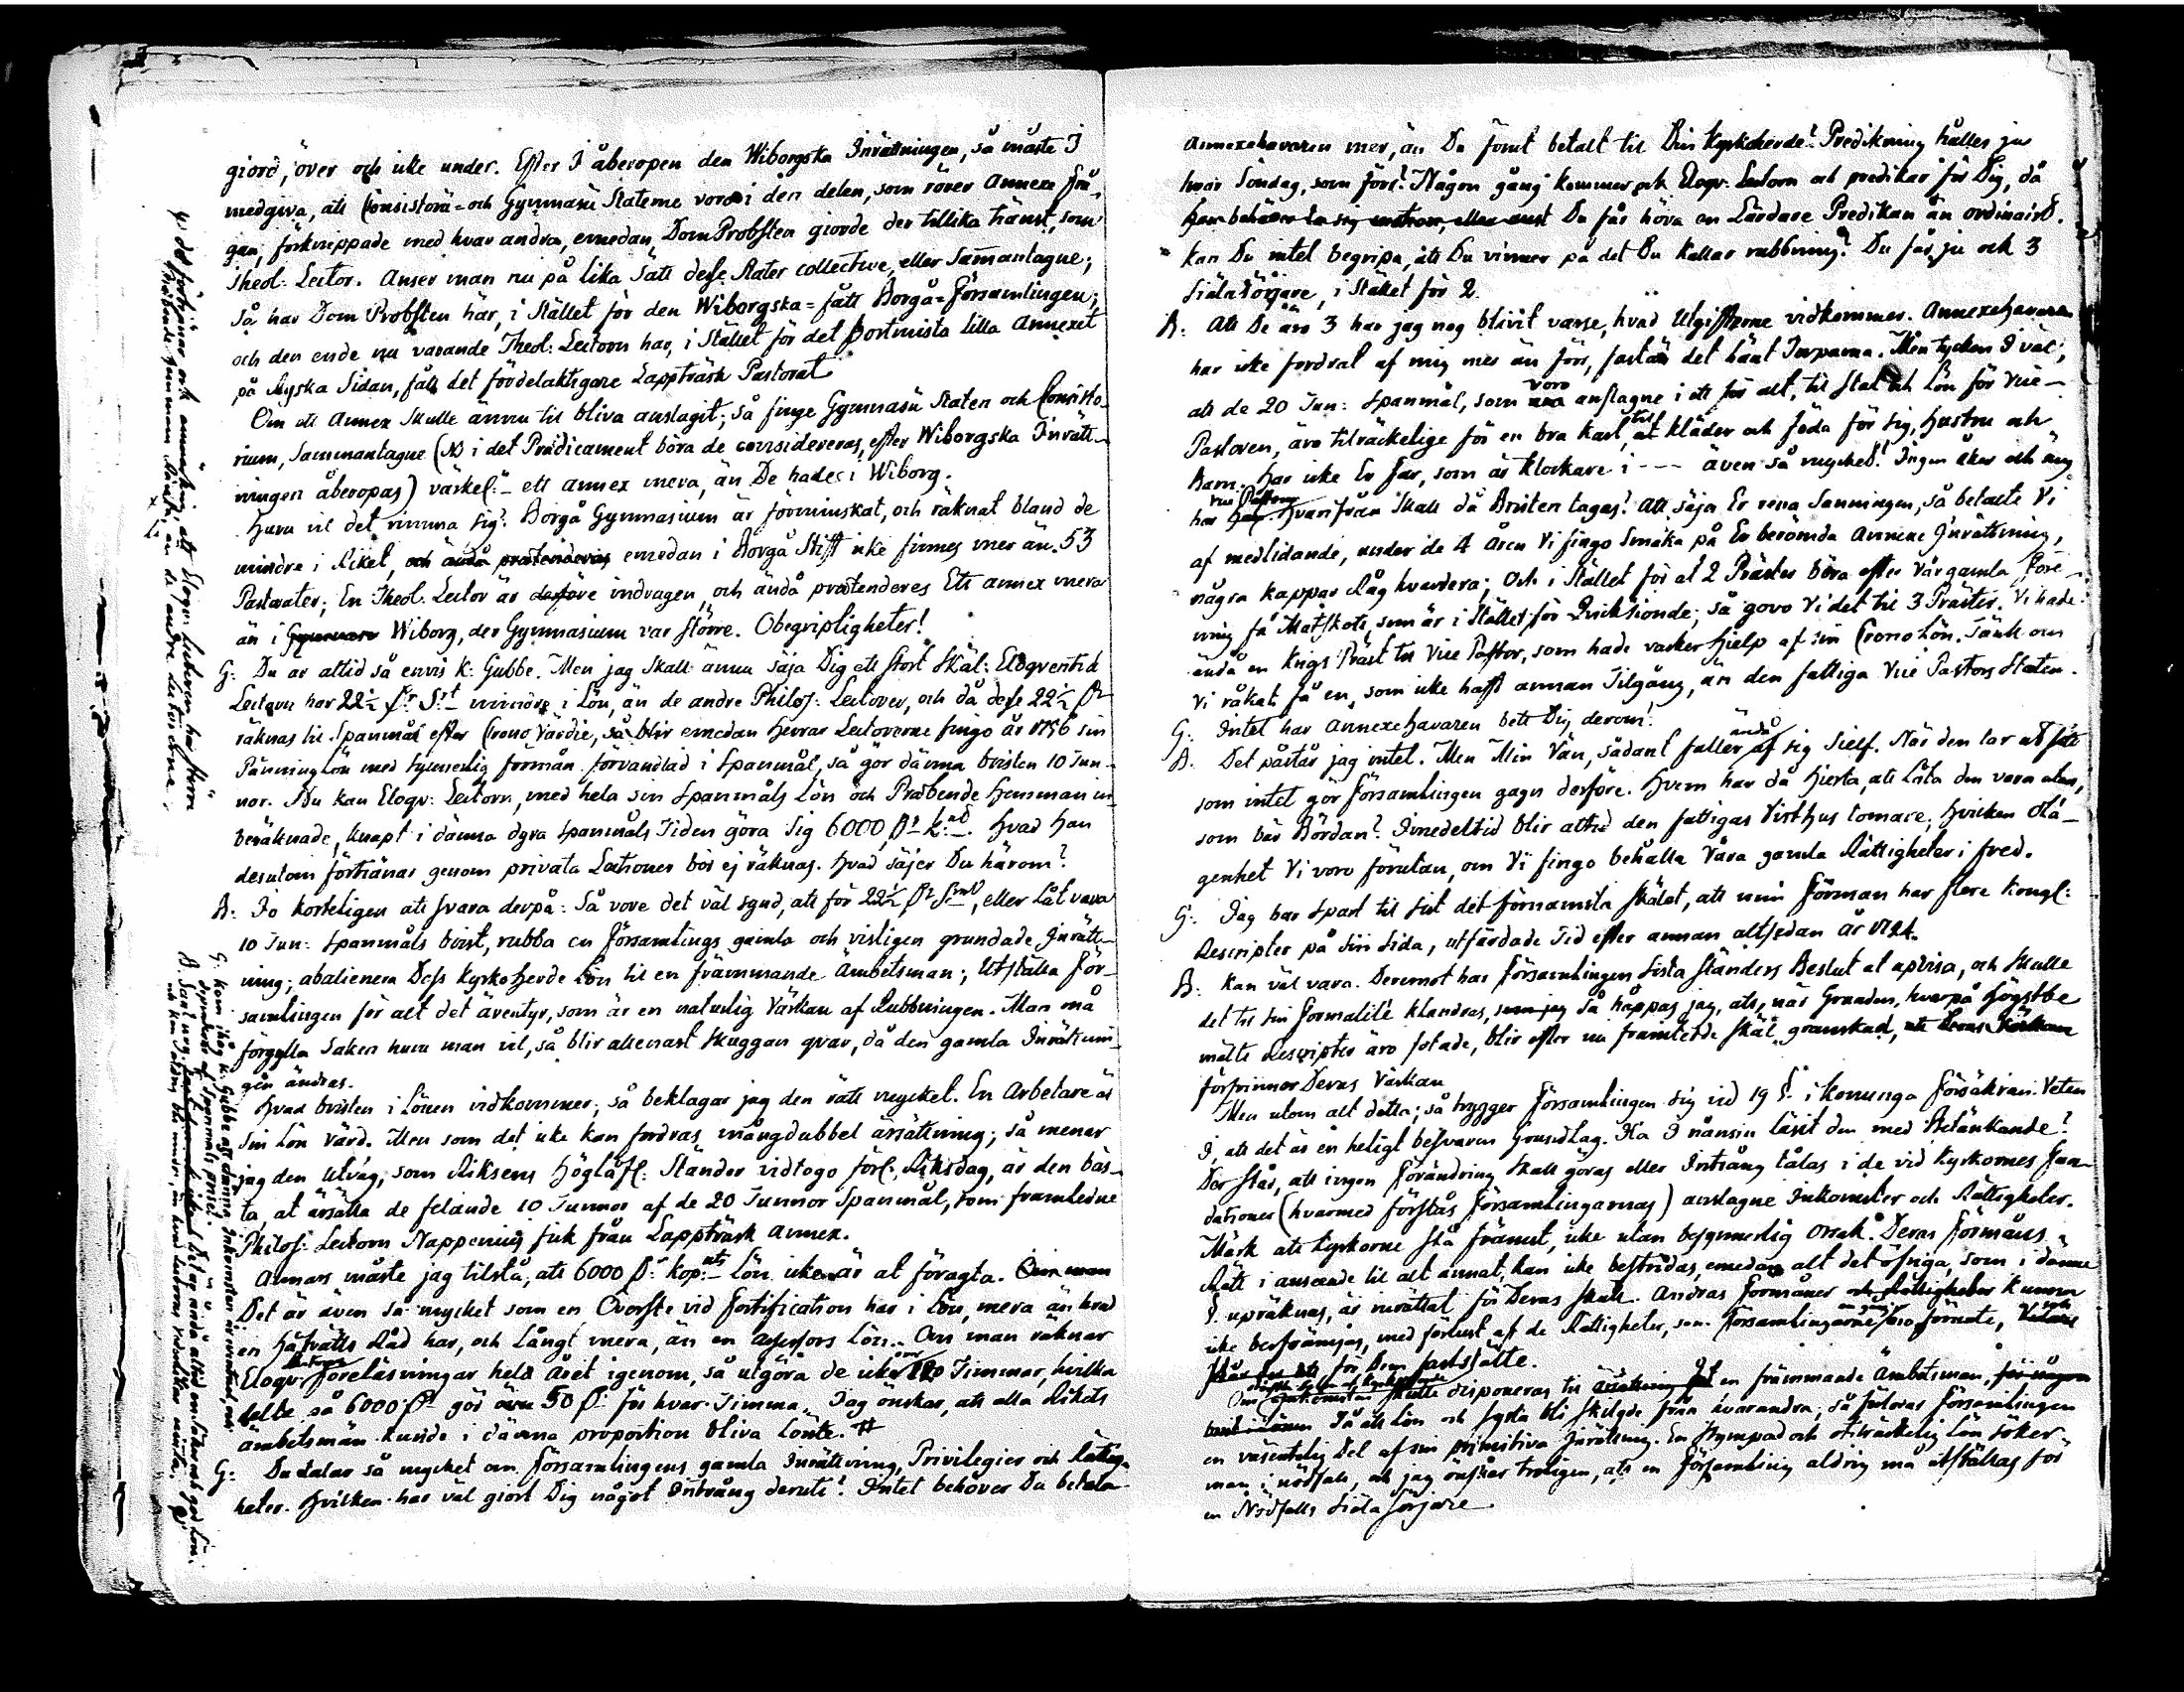 giord, över och icke under. Efter I åberopen den Wiborgska Inrättningen, så måste I
medgiva, att Consistorii- och Gymnasii Staterne voro i den delen, som rörer Annexe frå-
gan, förknippade med hvar andra, emedan Dom Probsten giorde der tillika tränst, som
Theol: Lector. Anser man nu på lika sätt desse Stater collective, eller Samantagne;
Så har Dom Probsten här, i Stället för den Wiborgska- fått Borgå-Församlingen;
och den ende nu varande Theol: Lectorn har, i Stället för det bortmista lilla Annexet
på Ryska Sidan, fått det fördelaktigare Lappträsk Pastorat.
Om ett Annex skulle ännu til bliva anslagit; så finge Gymnasii Staten och Consisto-
rium, sammantagne (NB i det Prædicament böra de considereras, efter Wiborgska Inrätt-
ningen åberopas) värkel:- ett annex mera, än De hade i Wiborg.
Huru vil det rimma sig? Borgå Gymnasium är förminskat, och räknat bland de
mindre i Riket, och ändå prætenderas emedan i Borgå Stift icke finnes mer än 53
Pastorater; En Theol. Lector är derföre indragen, och ändå prætenderes Ett annex mera
än i Gymnasii Wiborg, der Gymnasium var större. Obegripligheter!
G: Du är altid så envis k: Gubbe. Men jag skall ännu säja Dig ett stort Skäl: Eloqventiæ
Lectorn har 22½ Rr Smt mindre i Lön, än de andre Philos: Lectorer, och då desse 22½ Rr
räknas til Spanmål efter Crono Värdie, så blir emedan Herrar Lectorerne fingo år 1756 sin
Pänning Lön med synnerlig förmån förvandlad i Spanmål, så gör dänna bristen 10 Tun-
nor. Nu kan Eloqv: Lectorn, med hela sin Spanmåls Lön och Præbende Hemman in-
beräknade, knapt i dänna dyra Spanmåls Tiden göra sig 6000 Dr k:mt. Hvad han
desutom förtränar genom privata Lectioner bör ej räknas. Hvad säjer Du härom?
B: Jo korteligen att svara derpå: Så vore det väl synd, att för 22½ Rr Smt, eller Låt vara
10 Tun: Spanmåls brist, rubba en Församlings gamla och visligen grundade Inrätt-
ning; abalienera Dess kyrkoherde Lön til en främmande Ämbetsman; utställa För-
samlingen för alt det äventyr, som är en naturlig Värkan af Rubbningen. Man må
förgylla Saken huru man vil, så blir allenast Skuggan qvar, då den gamla Inrättnin-
gen ändras.
Hvad bristen i Lönen vidkommer; så beklagar jag den rätt mycket. En Arbetare är
Sin Lön värd. Men som det icke kan fordras mångdubbel ärsättning; så menar
jag den utväg, som Riksens Höglåfl: Ständer vidtogo förl: Riksdag, är den bäs-
ta, at ärsätta de felande 10 Tunnor af de 20 Tunnor Spanmål, som framledne
Philos: Lectorn Nappenius fick från Lappträsk Annex.
Annars måste jag tilstå, att 6000 Dr kop:mts Lön icke är at föragta. Om man
Det är även så mycket som en Överste vid Fortification har i Lön, mera än hvad
en Håfrätts Råd har, och Långt mera, än en Lön. Om man räknar
Eloqv: Lectorns föreläsningar hela året igenom, så utgöra de icke över 120 Timmar, hvilka
delte på 6000 Dr gör 50 Dr för hvar Timma. Jag önskar, att alla Rikets
ämbetsmän kunde i dänna proportion bliva Lönte. #
G: Du talar så mycket om Församlingens gamla Inrättning, Privilegier och Rättig-
heter. Hvilken har väl giort Dig något Intrång deruti? Intet behöver Du betala
Annexehavaren mer, än Du förut betalt til Din Kyrkoherde? Predikning hålles ju
hvar Söndag, som förr? Någon gång kommer ock Eloqv: Lectorn och predikar för Dig, då
Du får höra en Lärdare Predikan än ordinairt.
Kan Du intet begripa, att Du vinner på det Du kallar rubbning? Du får ju ock 3
Siäla sörjare, i Stället för 2.
B: Att De äro 3 har jag nog blivit varse, hvad Utgifterne vidkommer. Annexehavaren
har icke fordrat af mig mer än förr, fastän det händt Inparna. Men tycken I väl,
att de 20 Tun: Spanmål, som voro anslagne i ett för alt, til Stat och Lön för Vice-
Pastoren, äro tilräckelige för en bra karl, till kläder och föda för sig, Hustru och
Barn. Har icke Er Far, som är klockare i --- även så mycket? Ingen åker och äng
har Vice Pastorn. Hvarifrån skall då Bristen tagas? Att säja Er rena Sanningen, så betalte Vi
af medlidande, under de 4 åren Vi fingo smaka på Er berömda Annexe Inrättning,
några kappar Råg hvardera; Och i Stället för at 2 Präster böra efter Vår gamla före-
ning få Matskott, som är i Stället för Qvicktionde; så gåvo Vi det til 3 Präster. Vi hade
ändå en Krigs Präst til Vice Pastor, som hade vacker hjelp af sin Crono Lön. Tänk om
Vi råkat få en, som icke haft annan Tilgång, än den fattiga Vice Pastors Staten.
G: Intet har Annexehavaren bett Dig derom!
B. Det påstår jag intet. Men Min Vän, sådant faller ändå af sig Sielf. När den tar
som intet gör Församlingen gagn derföre. Hvem har då Hierta, att Låta den vara utan,
som bär Bördan? Imedeltid blir altid den fattigas Visthus tomare; hvilken olä-
genhet Vi voro förutan, om Vi fingo behålla våra gamla Rättigheter i fred.
G: Jag har spart til sist det förnämsta Skälet, att min Förman har flere kongl:
Rescripter på sin Sida, utfärdade Tid efter annan altsedan år 1724.
B: Kan väl vara. Deremot har Församlingen Sista Ständers Beslut at upvisa, och skulle
det til sin Formalité klandras, så håppas jag, att, när Grunden, hvarpå Högstbe
mälte Rescripter äro fotade, blir efter nu framtedde Skäl granskad,
försvinner Deras Värkan
Men utom alt detta; så trygger Församlingen sig vid 19 §. i konunga Försäkran. Veten
I, att det är en heligt besvuren Grundlag. Ha I nånsin läsit den med Betänkande?
Der står, att ingen Förändring skall göras eller Intrång tålas i de vid kyrkornes Fun-
dationer (hvarmed förstås Församlingarnas) anslagne Inkomster och Rättigheter.
Märk att kyrkorne stå främst, icke utan besynnerlig orsak. Deras förmåns
Rätt i anseende til alt annat, kan icke bestridas, emedan alt det öfriga, som i dänne
§. upräknas, är inrättat för Deras skull. Andras Förmåner och Rättigheter kunna
icke befrämjas, med förlust af de Rättigheter, som Församlingarne förunte,
för Dem fastställte.
Om skulle disponeras til en främmande Ämbetsman,
Då att Lön och syssla bli skilgde från hvarandra; så förlorar Församlingen
en väsentelig Del af sin primitiva Inrättning. En Stympad och otilräckelig Lön söker
man i nödfall, och jag önskar troligen, att en Församling aldrig må utställas för
en Nödfalls Siäla Sörjare
det förtjänar ock anmärkning, att Eloqv: Lectoren har större
Præbende Hemman än de andre Lectorerne.
G: Kom ihåg k: Gubbe att dänna Inkomsten är ovissad, och
dependerar af Spanmåls priset.